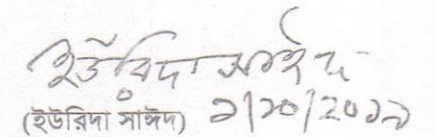 ইউরিদা সাঈদ
(ইউরিদা সাঈদ) ১/১০/২০১৯